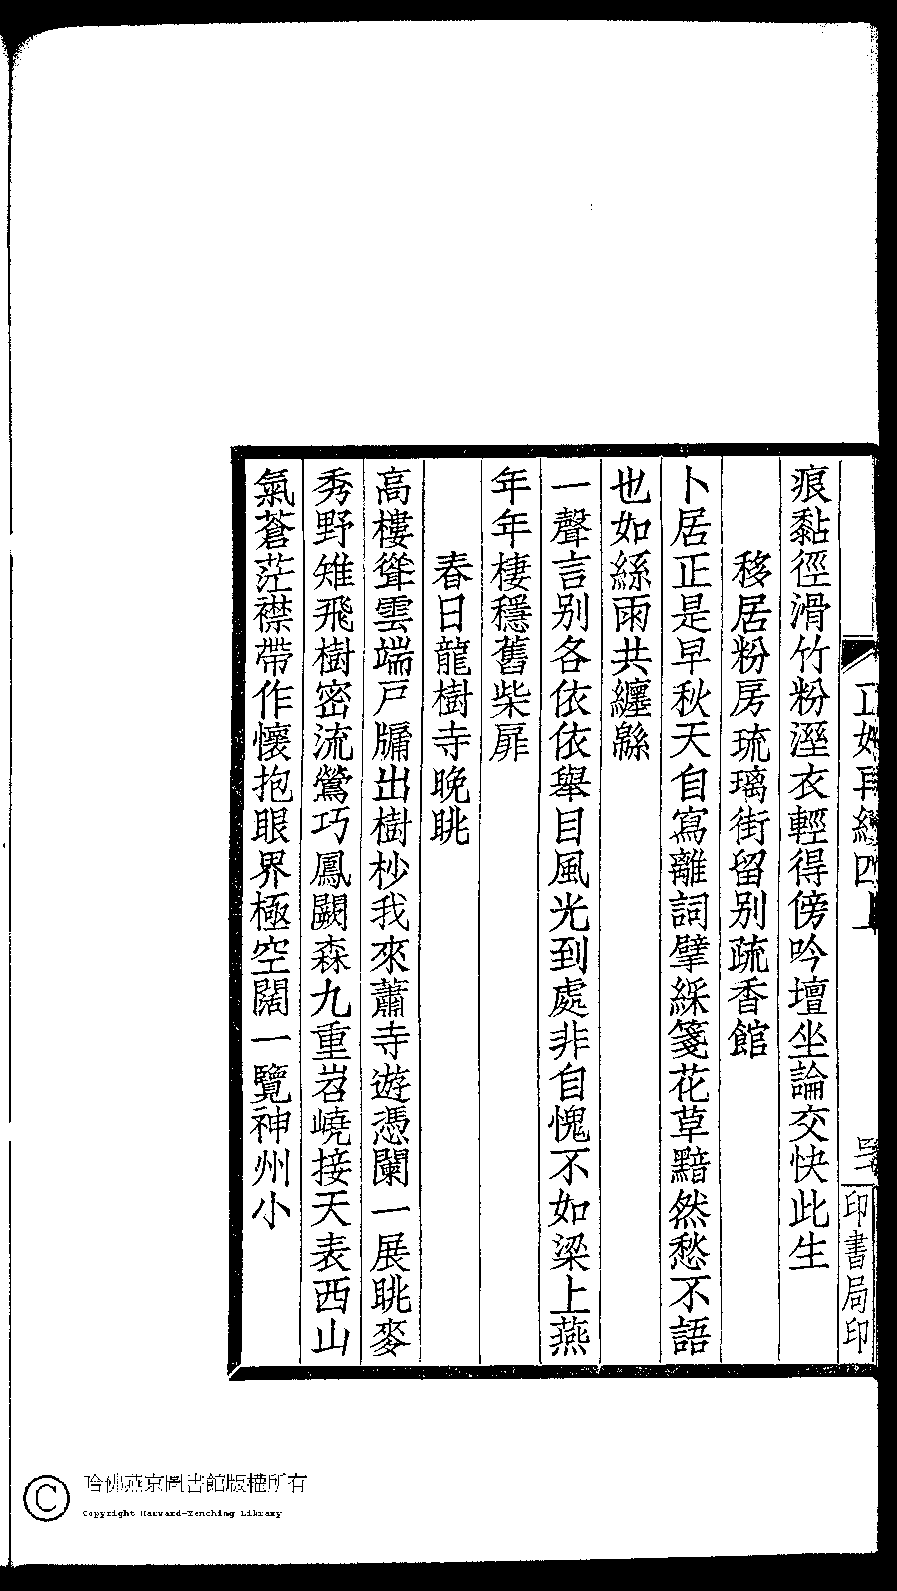 再續四上
印書局印
痕黏徑滑竹粉溼衣輕得傍吟壇坐論交快此生
移居粉房琉璃街留別疏香館
卜居正是早秋天自寫離詞擘綵箋花草黯然愁不語
也如絲雨共纏緜
一聲言別各依依舉目風光到處非自愧不如梁上燕
年年棲穩舊柴扉
春日龍樹寺晚眺
高樓聳雲端戶牖出樹杪我來蕭寺遊憑闌一展眺麥
秀野雉飛樹密流鶯巧鳳闕森九重岧嶢接天表西山
氣蒼茫襟帶作懷抱眼界極空闊一覽神州小
哈佛燕京圖書館版權所有
Copyright Harvard-Yenching Library